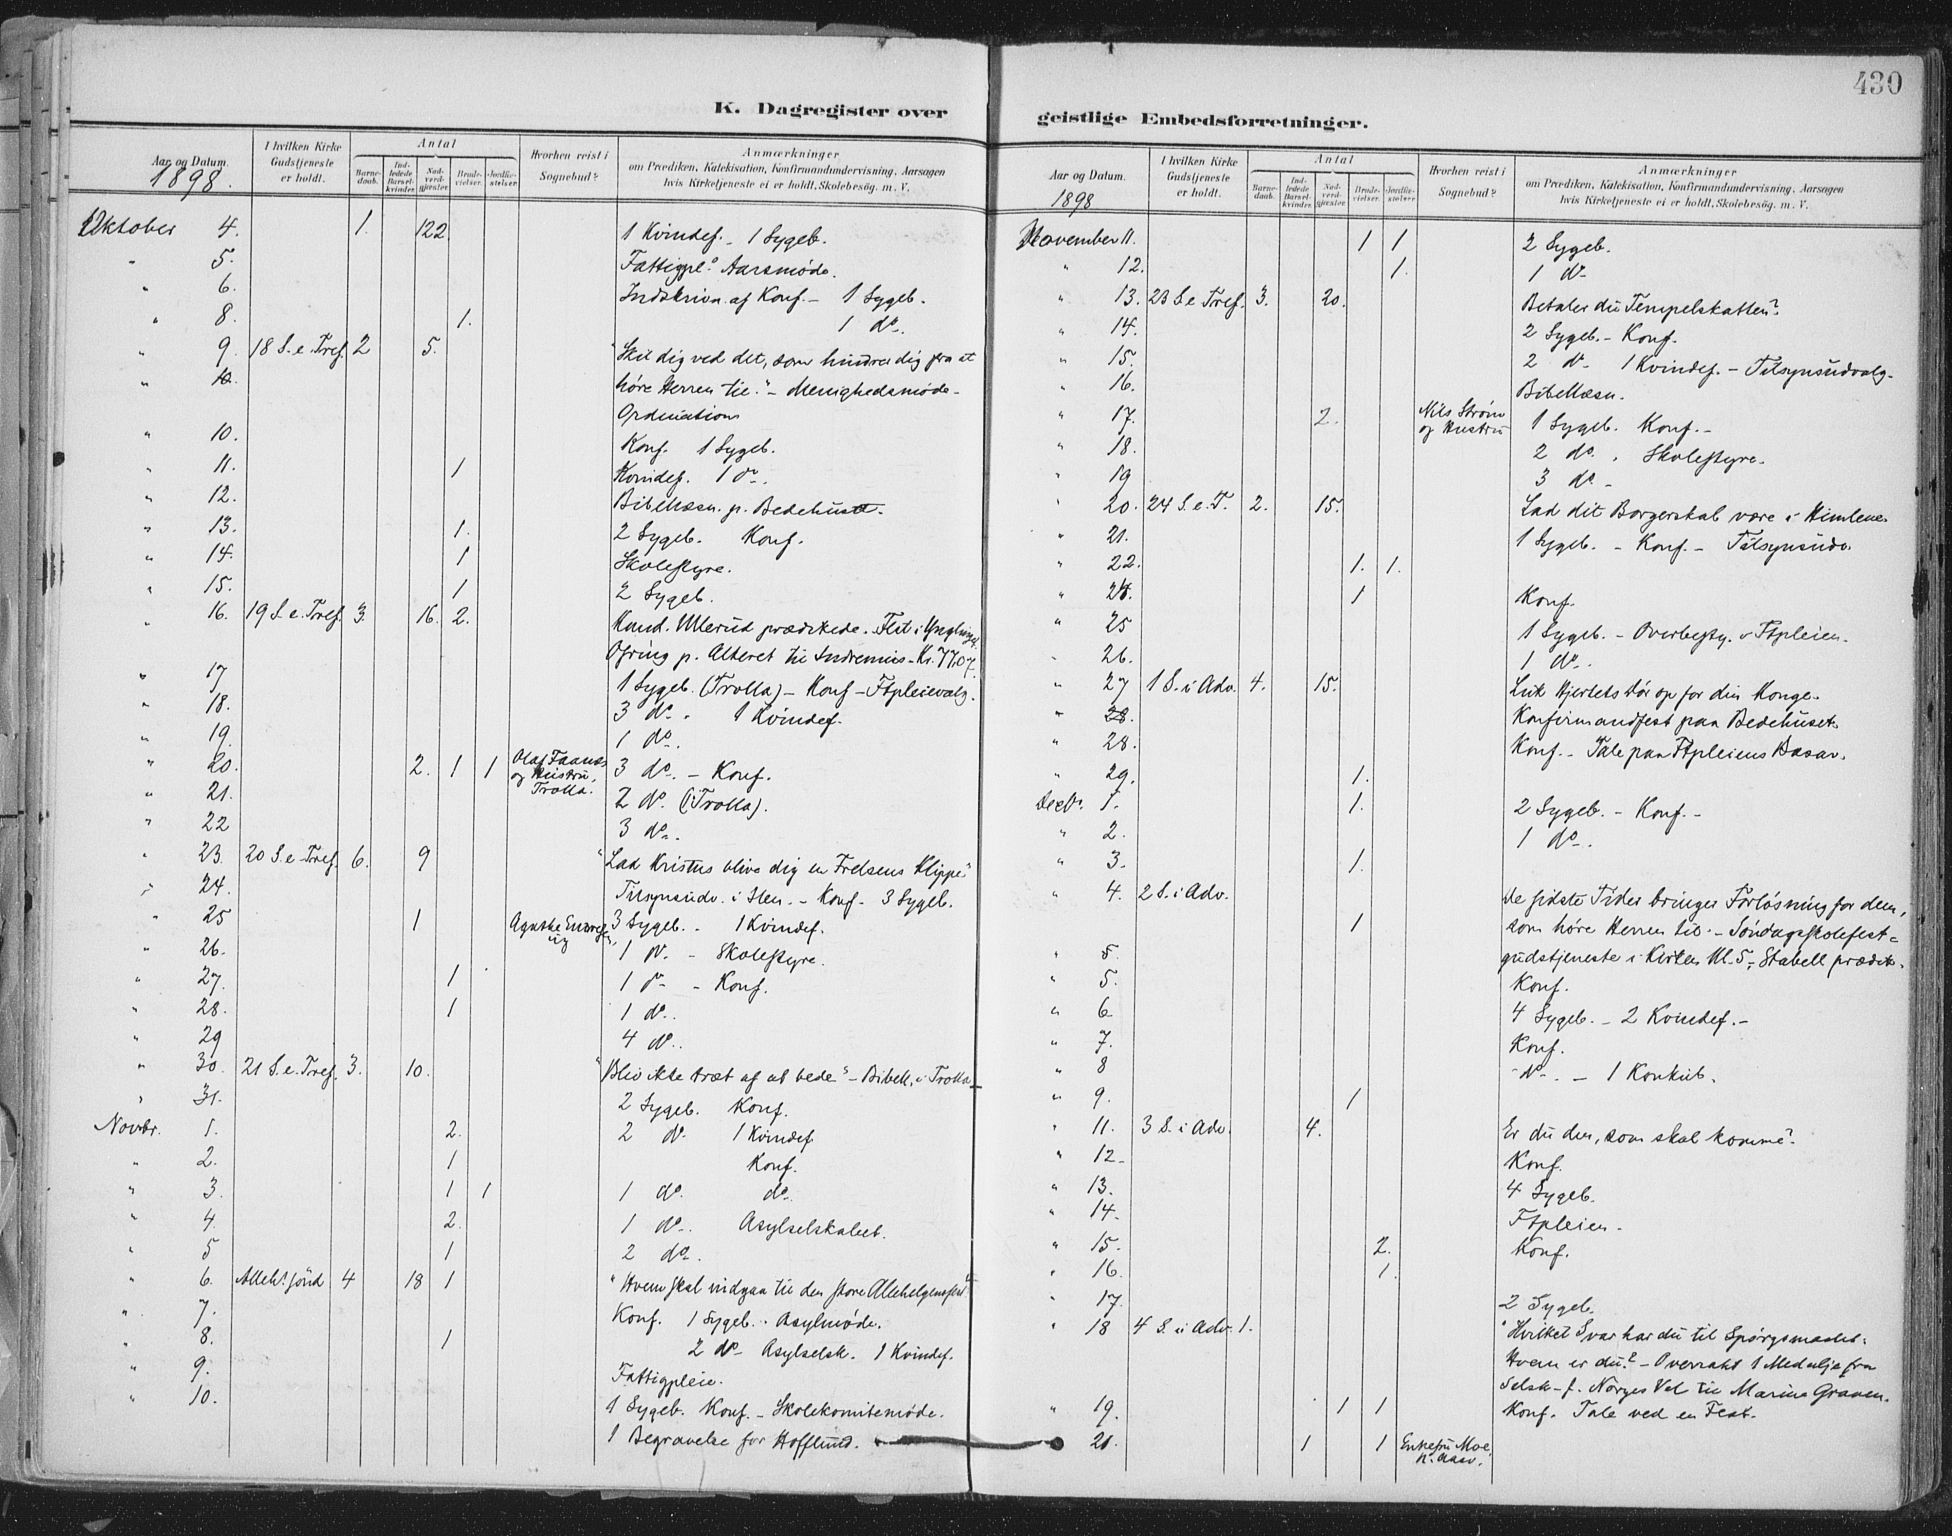 430
K. Dagregister over
geistlige Embedsforretninger.
Aar og Datum.
1898.
I hvilken Kirke Gudstjeneste er holdt.
Antal
Barnedaab.
Indledede Barselkvinder.
Nadverdgjester
Brudevielser.
Jordfæstelser
Hvorhen reist i Sognebud?
Anmærkninger
om Prædiken, Katekisation, Konfirmandundervisning, Aarsagen
hvis Kirketjeneste ei er holdt, Skolebesög. m. V.
Oktober 4. 1. 122. 1 Kvindef. - 1 Sygeb.
" 5. Fattigpl. Aarsmøde.
" 6. Indskrivn. af Konf. - 1 Sygeb.
" 8. 1. 1 do.
" 9. 18 S. e. Tref. 2 5. "Skil dig ved det, som hindrer dig fra at
høre Herren til." - Menighedsmøde -
Ordination
" 10. Konf. 1 Sygeb.
" 11. 1 Kvindef. 1 do.
" 12. Bibellæsn. p. Bedehuset.
" 13. 1. 2 Sygeb. Konf.
" 14. 1 Skolestyre.
" 15. 1 2 Sygeb.
" 16. 19 S. e. Tref. 3. 16. 2. Kand. Ullerud prædikede. Fest i
Ofring p. Alteret til Indremis. - Kr. 77.07.
" 17 1 Sygeb. (Trolla) - Konf - Ftpleievalg.
" 18. 3 do. 1 Kvindef.
" 19. 1 do.
" 20. 2. 1 1 Olaf Faanes og Hustru, Trolla. 3 do. - Konf.
" 21. 2 do. (Trolla).
" 22 3 do.
" 23. 20 S. e. Tref. 6. 9 "Lad Kristus blive dig en Frelsens Klippe"
" 24. Tilsynsudv. i Ilen. - Konf. 3 Sygeb.
" 25 1 Agathe 3 Sygeb. - 1 Kvindef.
" 26. 1 do. - Skolestyre.
" 27. 1 1 do - Konf.
" 28. 1 1 do.
" 29 4 do.
" 30. 21 S. e. Tref. 3. 10. "Bliv ikke træt af at bede" - Bibell. i Trolla
" 31. 2 Sygeb. Konf.
Novbr. 1. 2. 2 do. 1 Kvindef
" 2. 1 Konf.
" 3. 1 1 1 do. do.
" 4. 2. 1 do. Asylselskabet.
" 5 1 2 do.
" 6. Alleh. sønd 4 18 1 "Hvem skal indgaa til den store Allehelgensfest"
" 7. Konf. 1 Sygeb. - Asylmøde.
" 8. 1 2 do - Asylselsk. 1 Kvindef.
" 9. Fattigpleie.
" 10. 1 Sygeb. Konf. - Skolekomitemøde.
1 Begravelse for Hofflund.
Aar og Datum.
1898
I hvilken Kirke Gudstjeneste er holdt.
Antal
Barnedaab.
Indledede Barselkvinder.
Nadverdgjester
Brudevielser.
Jordfæstelser
Hvorhen reist i Sognebud?
Anmærkninger
om Prædiken, Katekisation, Konfirmandundervisning, Aarsagen
hvis Kirketjeneste ei er holdt, Skolebesög. m. V.
November 11. 1 1 2 Sygeb.
" 12. 1. 1 do
" 13. 23 S. e. Tref. 3. 20. Betaler du Tempelskatten?
" 14. 2 Sygeb. - Konf.
" 15. 2 do 1 Kvindef. - Tilsynsudvalg.
" 16. Bibellæsn.
" 17. 2. Nils Strøm og Hustru 1 Sygeb. Konf. -
" 18. 2 do. Skolestyre.
" 19 3 do -
" 20. 24 S. e. T. 2. 15. Lad dit Borgerskab være i Himlene.
" 21. 1 Sygeb. - Konf. - Tilsynsudv.
" 22. 1. 1.
" 24. 1 Konf.
" 25 1 Sygeb. - Overbesty. v Ftpleien.
" 26. 1 do.
" 27 1 S. i Adv. 4. 15. Luk Hjertets Dör op for din Konge.
" 28. Konfirmandfest paa Bedehuset.
" 28. Konf. - Tale paa Ftpleiens Basar.
" 29. 1.
Decbr. 1. 1. 2 Sygeb. - Konf. -
" 2. 1 do.
" 3. 1.
" 4. 2 S. i Adv. De sidste Tider bringer Forløsning for dem,
1 som høre Herren til. - Søndagsskolefest-
" 5. gudstjeneste i Kirken Kl. 5, Stabell prædik.
" 5. Konf.
" 6 4 Sygeb. - 2 Kvindef. -
" 7. Konf.
" 8 do. - 1 Konkub.
" 9. 1
" 11. 3 S. i Adv. 4. Er du den, som skal komme?
" 12 - Konf.
" 13. 4 Sygeb.
" 14. Ftpleien.
" 15. 2. Konf.
" 16. 1.
" 17. 2 Sygeb.
" 18 4 S. i Adv. 1. "Hvilket Svar har du til Spørgsmaalet:
Hvem er du?" - Overrakt 1 Medalje fra
Selsk. f. Norges Vel til Marine Graven.
" 19. 1 1 Konf. Tale ved en Fest.
21. 1 1 Enkefru Moe,